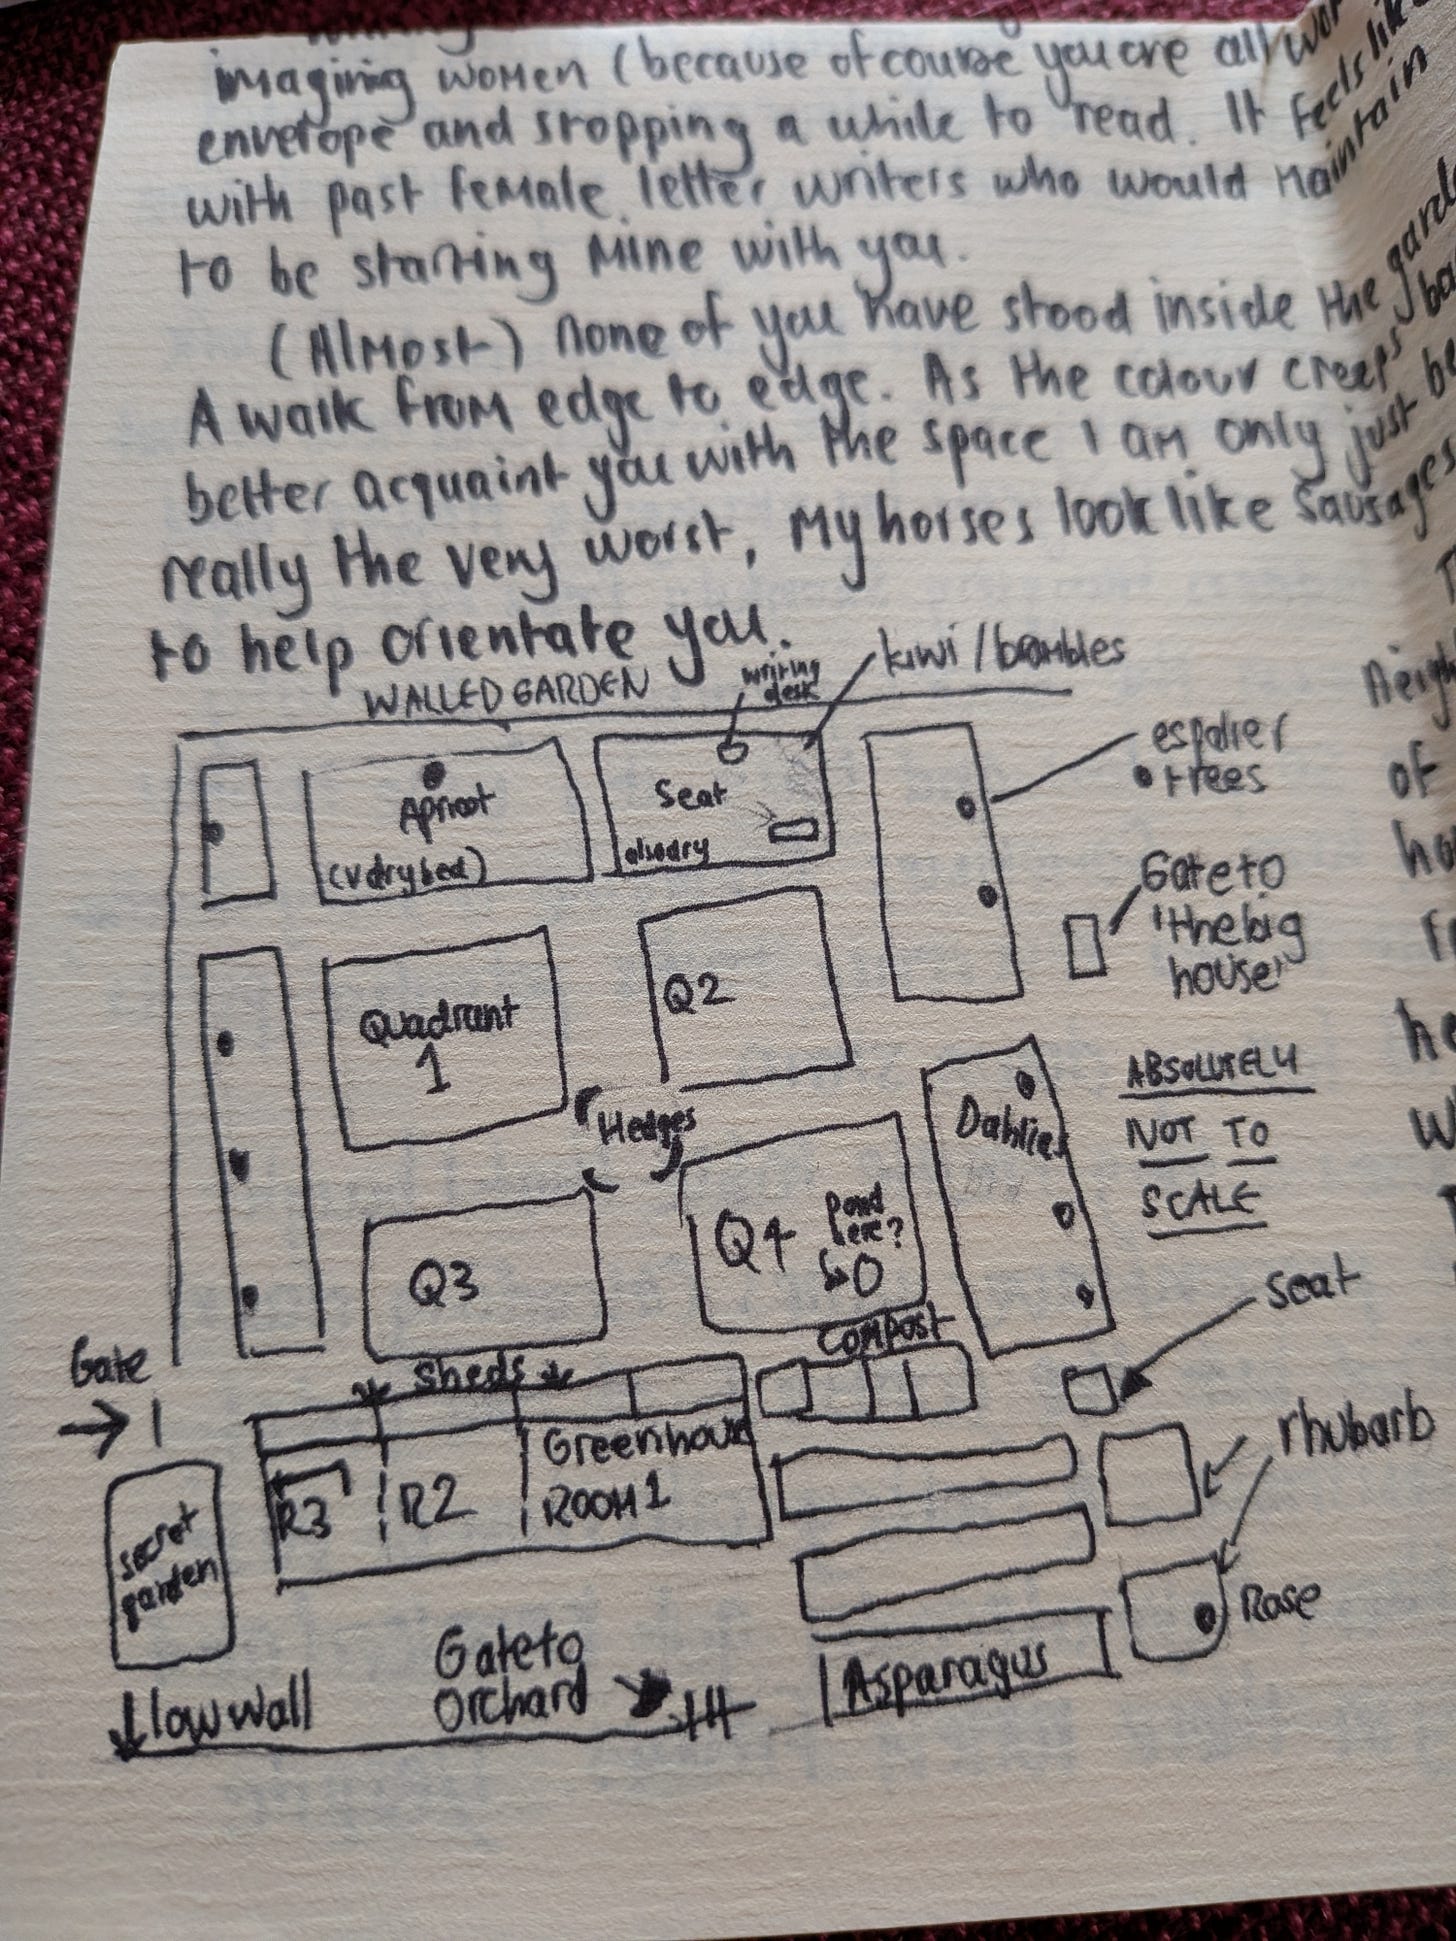 imagining women (because of course you are all wor
envelope and stopping a while to read. It feels like
with past female letter writers who would maintain
to be starting mine with you.
(Almost) none of you have stood inside the garde
A walk from edge to edge. As the colour creeps ba
better acquaint you with the space I am only just be
really the very worst, my horses look like sausages
to help orientate you.
WALLED GARDEN
writing
desk
kiwi/brambles
espalier
• trees
Apricot
(v dry bed)
Seat
also dry
Gate to
'the big
house'
Quadrant
1
Q2
Hedges
Dahlies
ABSOLUTELY
NOT TO
SCALE
Q3
Q4
Pond
here?
Compost
Seat
Gate
Sheds
Greenhouse
ROOM 1
R2
R3
rhubarb
secret
garden
Rose
Gate to
Orchard
Asparagus
low wall